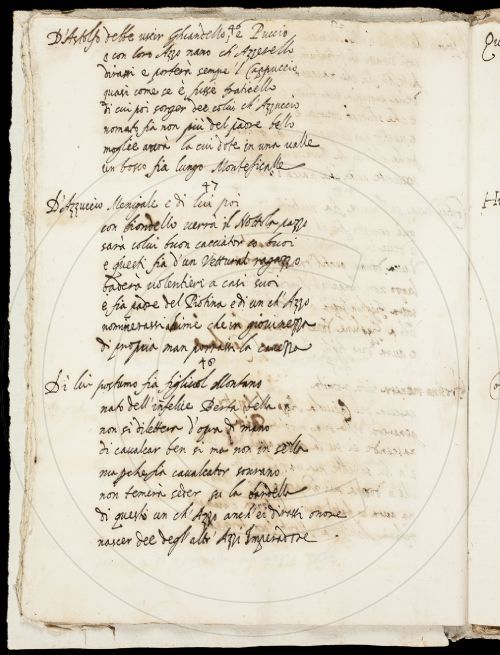 46
D'Astolfo dette uscir Ghiandello, e Puccio
e con loro Azzo nano ch'Azzerello
dirassi e porterà sempre 'l Cappuccio
quasi come se e' fusse fraticello
di cui poi sorger dee colui ch'Azzuccio
nomato fia non più del padre bello
moglie avrà la cui dote in una valle
un bosco fia lungo Monteficalle
47
D'Azzuccio Menicale e di lui poi
con biondello verrà il Nottola pazzo
sarà colui buon cacciator co buoi
e questi fia d'un Vettural ragazzo
baderà volentieri a casi suoi
e fia padre del e di un ch'Azzo
nommerassi che in giovinezza
di propria man porrassi la cavezza
48
Di lui postumo fia figliuol Montano
nato dell'infelice Berta bella
non si diletterà d'opra di mano
di cavalcar ben sì ma non in sella
ma perche fia cavalcator sovrano
non temerà seder su la bardella
di questi un ch'Azzo anch'ei dirassi onore
nascer dee degl'altr'Azzi Imperadore